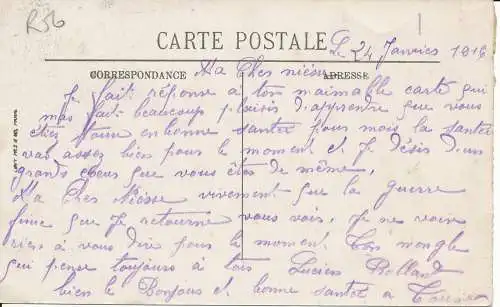 R56
CARTE POSTALE
Le 24 Janvier 1916
CORRESPONDANCE
ADRESSE
Ma Cher niésse
Je fait réponse à ton maimable carte qui
mas fait beaucoup plaisis d'apprendre que vous
êtes toune en bonne santer pour mois la santer
vas assez bien pour le moment et Je désis d'un
grands cœus que vous êtes de même,
Ma Cher Niésse vivement que la guerre
finie que Je retourne vous vois, Je ne vois
rien à vous dire pour le moment Ton
qui pense toujours à tois Lucien Rolland
bien le Bonjous et bonne santer a